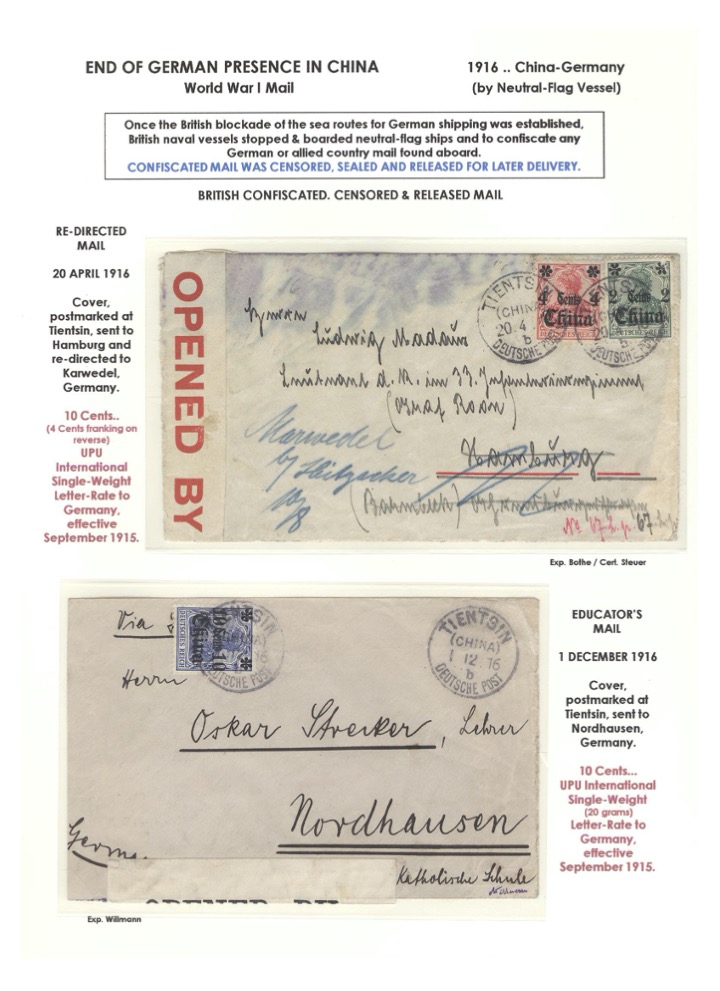 END OF GERMAN PRESENCE IN CHINA
World War I Mail
1916 .. China-Germany
(by Neutral-Flag Vessel)
Once the British blockade of the sea routes for German shipping was established,
British naval vessels stopped & boarded neutral-flag ships and to confiscate any
German or allied country mail found aboard.
CONFISCATED MAIL WAS CENSORED, SEALED AND RELEASED FOR LATER DELIVERY.
BRITISH CONFISCATED. CENSORED & RELEASED MAIL
RE-DIRECTED
MAIL
20 APRIL 1916
Cover,
postmarked at
Tientsin, sent to
Hamburg and
re-directed to
Karwedel,
Germany.
10 Cents..
(4 Cents franking on
reverse)
UPU
International
Single-Weight
Letter-Rate to
Germany,
effective
September 1915.
OPENED BY
4 Cents 4
China
2 Cents 2
China
TIENTSIN
(CHINA)
20.4
b
DEUTSCHE POST
Herrn
Ludwig Madaus
Leutnant d. R. im 33. Infanterieregiment
(Graf Roon)
Marwedel
b/ Hitzacker
10/8
Hamburg
(Barmbeck)
Exp. Bothe / Cert. Steuer
EDUCATOR'S
MAIL
1 DECEMBER 1916
Cover,
postmarked at
Tientsin, sent to
Nordhausen,
Germany.
10 Cents...
UPU International
Single-Weight
(20 grams)
Letter-Rate to
Germany,
effective
September 1915.
Via
DEUTSCHES REICH
10 Cents 10
China
TIENTSIN
(CHINA)
1 12 16
b
DEUTSCHE POST
Herrn
Oskar Strecker, Lehrer
Nordhausen
Germa.
Katholische Schule
OPENED BY
Exp. Willmann